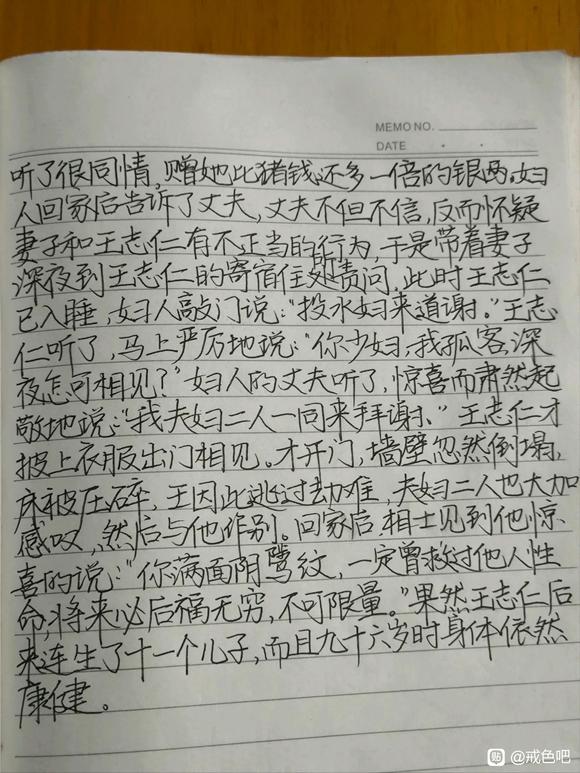 MEMO NO.
DATE
听了很同情,赠她比猪钱还多一倍的银两。妇
人回家后告诉了丈夫,丈夫不但不信,反而怀疑
妻子和王志仁有不正当的行为,于是带着妻子
深夜到王志仁的寄宿住处责问。此时王志仁
已入睡,妇人敲门说:"投水妇来道谢。"王志
仁听了,马上严厉地说:"你少妇,我孤客,深
夜怎可相见?"妇人的丈夫听了,惊喜而肃然起
敬地说:"我夫妇二人一同来拜谢、"王志仁才
披上衣服出门相见。才开门,墙壁忽然倒塌,
床被压碎,王因此逃过劫难,夫妇二人也大加
感叹,然后与他作别。回家后,相士见到他惊
喜的说:"你满面阴骘纹,一定曾救过他人性
命,将来必后福无穷,不可限量。"果然王志仁后
来连生了十一个儿子,而且九十六岁时身体依然
康健。
贴 @戒色吧